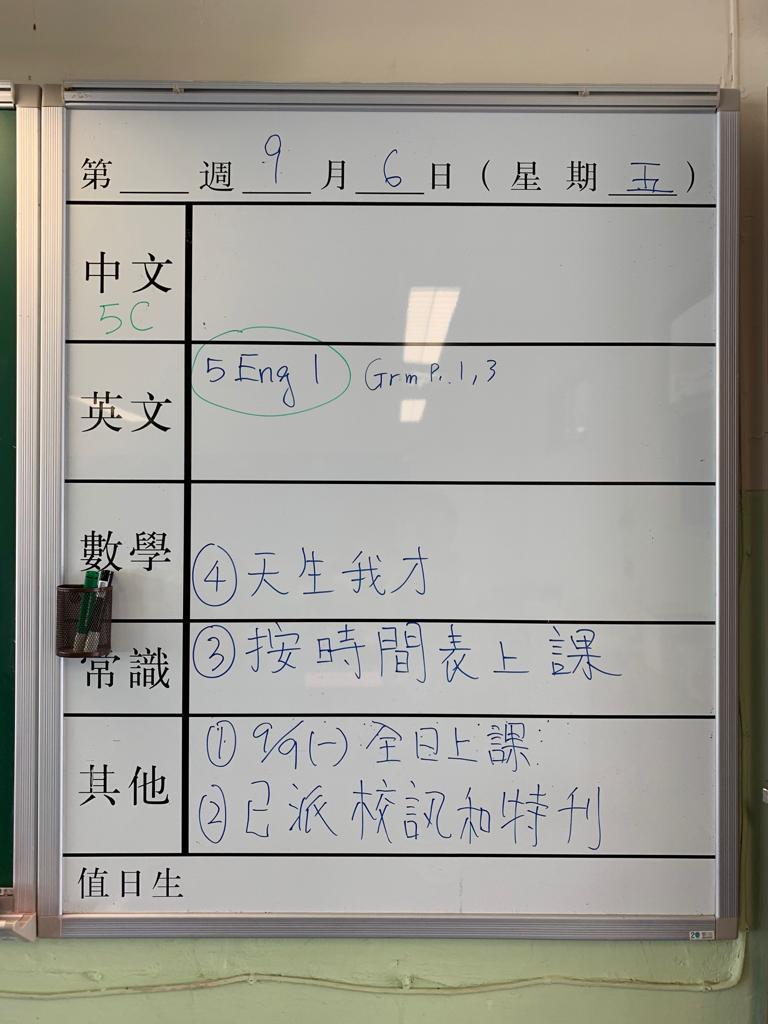 第 週 9 月 6 日 ( 星 期 五 )
中文
5C
英文
5 Eng 1 Grm P. 1, 3
數學
④ 天生我才
常識
③ 按時間表上課
其他
① 9/9(一) 全日上課
② 已派校訊和特刊
值日生